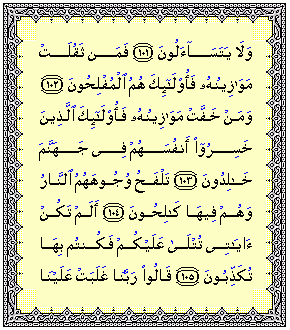 وَلَا يَتَسَآءَلُونَ ١٠١ فَمَن ثَقُلَتۡ
مَوَٰزِينُهُۥ فَأُوْلَٰٓئِكَ هُمُ ٱلۡمُفۡلِحُونَ ١٠٢
وَمَنۡ خَفَّتۡ مَوَٰزِينُهُۥ فَأُوْلَٰٓئِكَ ٱلَّذِينَ
خَسِرُوٓاْ أَنفُسَهُمۡ فِي جَهَنَّمَ
خَٰلِدُونَ ١٠٣ تَلۡفَحُ وُجُوهَهُمُ ٱلنَّارُ
وَهُمۡ فِيهَا كَٰلِحُونَ ١٠٤ أَلَمۡ تَكُنۡ
ءَايَٰتِي تُتۡلَىٰ عَلَيۡكُمۡ فَكُنتُم بِهَا
تُكَذِّبُونَ ١٠٥ قَالُواْ رَبَّنَا غَلَبَتۡ عَلَيۡنَا